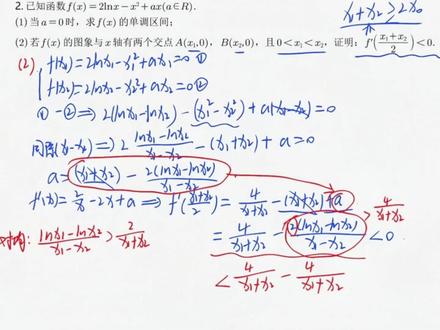 2. 已知函数f(x)=2lnx-x²+ax(a∈R).
(1) 当a=0时, 求f(x)的单调区间;
(2) 若f(x)的图象与x轴有两个交点A(x₁,0), B(x₂,0), 且0<x₁<x₂, 证明: f'((x₁+x₂)/2)<0.
x₁+x₂≥2x₀
(2) { f(x₁)=2lnx₁-x₁²+ax₁=0 ①
f(x₂)=2lnx₂-x₂²+ax₂=0 ②
①-② ⇒ 2(lnx₁-lnx₂)-(x₁²-x₂²)+a(x₁-x₂)=0
同除(x₁-x₂) ⇒ 2 (lnx₁-lnx₂)/(x₁-x₂) -(x₁+x₂)+a=0
a=(x₁+x₂)- 2(lnx₁-lnx₂)/(x₁-x₂)
f'(x)=2/x-2x+a ⇒ f'((x₁+x₂)/2)= 4/(x₁+x₂) -(x₁+x₂)+a
= 4/(x₁+x₂) - 2(lnx₁-lnx₂)/(x₁-x₂) <0
> 4/(x₁+x₂)
: (lnx₁-lnx₂)/(x₁-x₂) > 2/(x₁+x₂)
< 4/(x₁+x₂) - 4/(x₁+x₂)